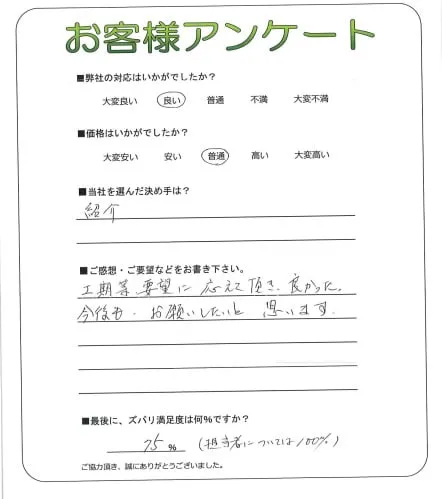 お客様アンケート
■弊社の対応はいかがでしたか?
大変良い 良い 普通 不満 大変不満
■価格はいかがでしたか?
大変安い 安い 普通 高い 大変高い
■当社を選んだ決め手は?
紹介
■ご感想・ご要望などをお書き下さい。
工期等、要望に応えて頂き、良かった。
今後も、お願いしたいと思います。
■最後に、ズバリ満足度は何%ですか?
75% (担当者については100%)
ご協力頂き、誠にありがとうございました。